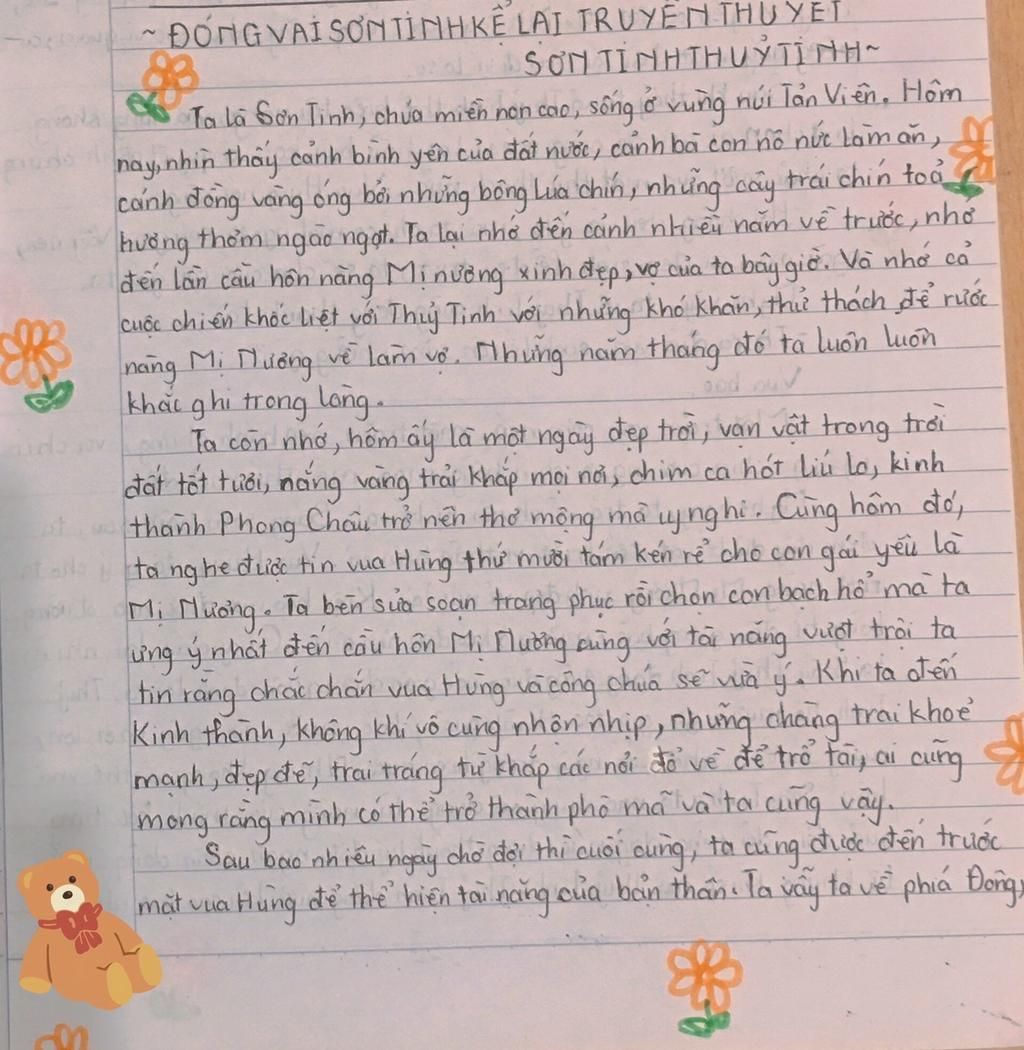 ~ ĐÓNG VAI SƠN TINH KỂ LẠI TRUYỀN THUYẾT
SƠN TINH THUỶ TINH ~
Ta là Sơn Tinh, chúa miền non cao, sống ở vùng núi Tản Viên. Hôm
nay, nhìn thấy cảnh bình yên của đất nước, cảnh bà con nô nức làm ăn,
cánh đồng vàng óng bởi những bông lúa chín, những cây trái chín toả
hương thơm ngào ngạt. Ta lại nhớ đến cảnh nhiều năm về trước, nhớ
đến lần cầu hôn nàng Mị nương xinh đẹp, vợ của ta bây giờ. Và nhớ cả
cuộc chiến khốc liệt với Thuỷ Tinh với những khó khăn, thử thách để rước
nàng Mị Nương về làm vợ. Những năm tháng đó ta luôn luôn
khắc ghi trong lòng.
Ta còn nhớ, hôm ấy là một ngày đẹp trời, vạn vật trong trời
đất tốt tươi, nắng vàng trải khắp mọi nơi, chim ca hót líu lo, kinh
thành Phong Châu trở nên thơ mộng mà uy nghi. Cùng hôm đó,
ta nghe được tin vua Hùng thứ mười tám kén rể cho con gái yêu là
Mị Nương. Ta bèn sửa soạn trang phục rồi chọn con bạch hổ mà ta
ưng ý nhất đến cầu hôn Mị Nương cùng với tài năng vượt trội ta
tin rằng chắc chắn vua Hùng và công chúa sẽ vừa ý. Khi ta đến
Kinh thành, không khí vô cùng nhộn nhịp, những chàng trai khoẻ
mạnh, đẹp đẽ, trai tráng từ khắp các nơi đổ về để trổ tài, ai cũng
mong rằng mình có thể trở thành phò mã và ta cũng vậy.
Sau bao nhiêu ngày chờ đợi thì cuối cùng, ta cũng được đến trước
mặt vua Hùng để thể hiện tài năng của bản thân. Ta vẫy ta về phía Đông,